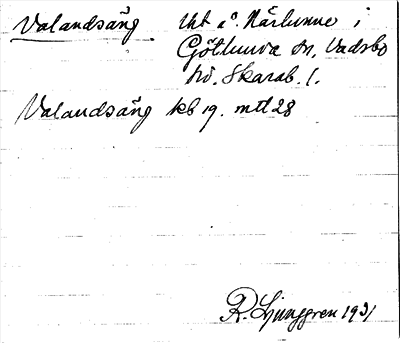 Valandsäng. Ukt å Närlunne i
Götlunda sn, Vadsbo
hd. Skarab. l.
Valandsäng kb 19. mtl 28
R. Ljunggren 1931